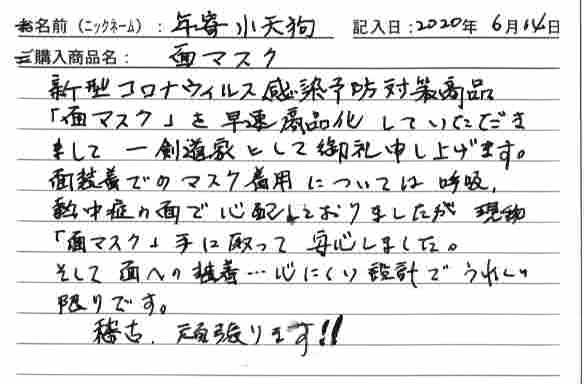 お名前（ニックネーム）：年寄小天狗 記入日：2020年 6月14日
ご購入商品名： 面マスク
新型コロナウィルス感染予防対策商品
「面マスク」を早速商品化していただきま
まして一剣道家として御礼申し上げます。
面装着でのマスク着用については呼吸、
熱中症の面で心配しておりましたが現物
「面マスク」手に取って安心しました。
そして面への装着…心にくい設計でうれしい
限りです。
稽古、頑張ります!!